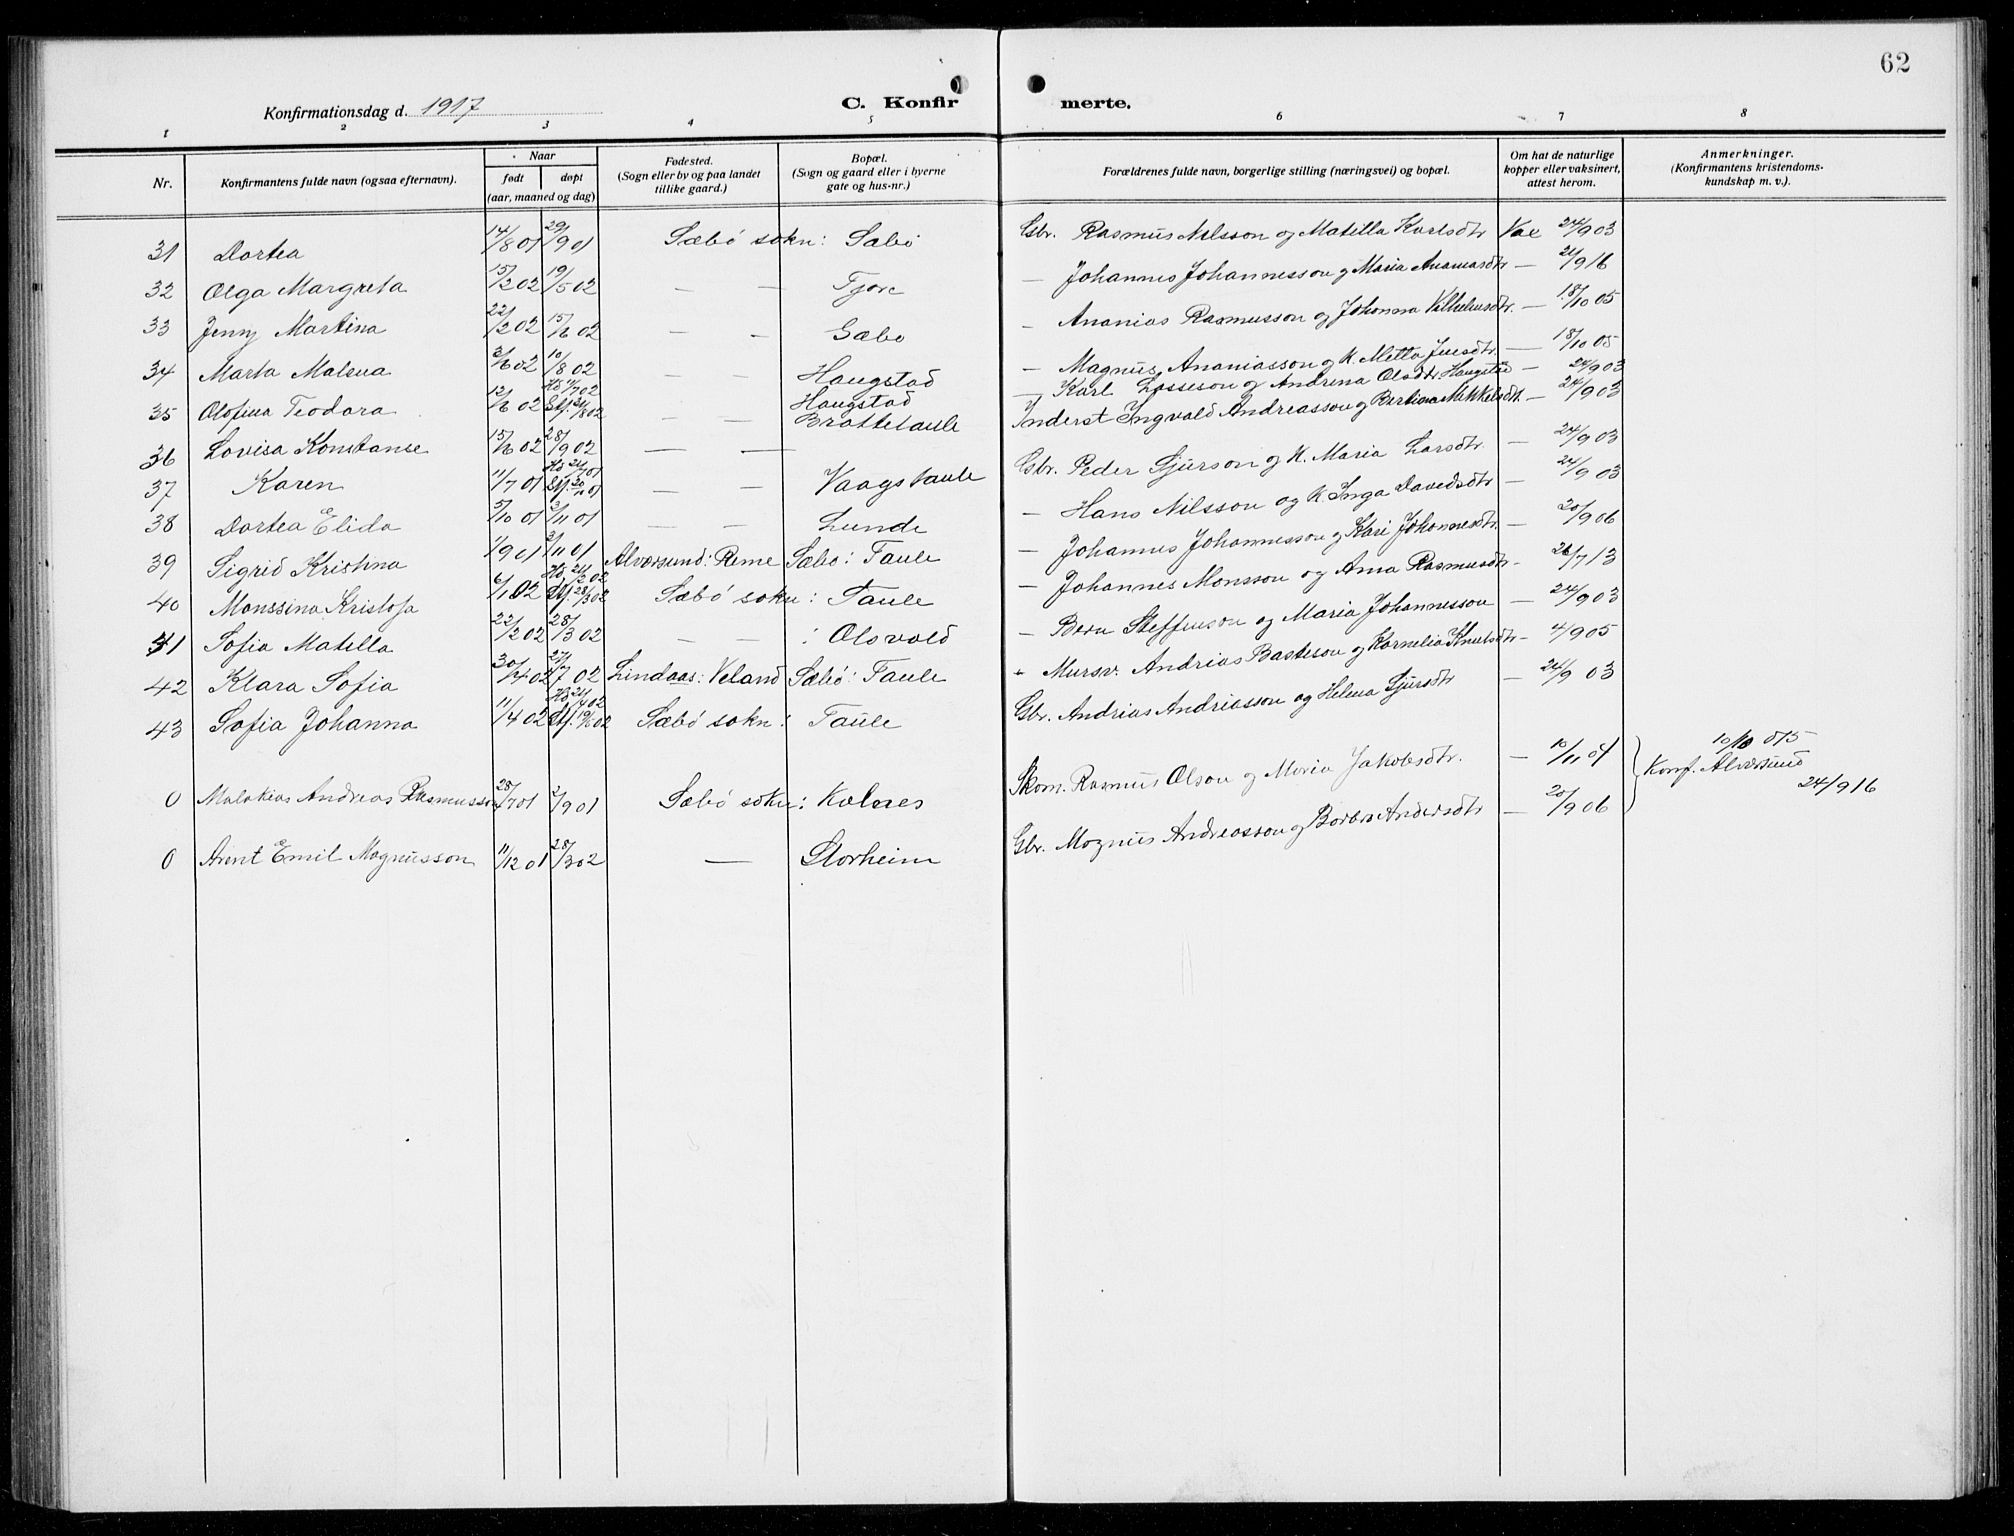 62
Konfirmationsdag d. 1917
C. Konfir merte.
1 2 3 4 5 6 7 8
Nr.
Konfirmantens fulde navn (ogsaa efternavn).
Naar
født
døpt
(aar, maaned og dag)
Fødested.
(Sogn eller by og paa landet
tillike gaard.)
Bopæl.
(Sogn og gaard eller i byerne
gate og hus-nr.)
Forældrenes fulde navn, borgerlige stilling (næringsvei) og bopæl.
Om hat de naturlige
kopper eller vaksinert,
attest herom.
Anmerkninger.
(Konfirmantens kristendoms-
kundskap m. v.).
31 Dortea 14/8 01 29/9 01 Sæbø sokn: Sæbø Gbr. Rasmus Nilsson og Matilla Karlsdtr Vac 24/9 03
32 Olga Margreta 15/2 02 19/5 02 — — Fjore — Johannes Johannesson og Maria Ananiasdtr — 21/9 16
33 Jenny Martina 22/2 02 15/6 02 — — Sæbø — Ananias Rasmusson og Johanna Vilhelmsdtr. — 18/10 05
34 Marta Malena 3/6 02 10/8 02 — — Haugstad — Magnus Ananiasson og K. Metta Jensdtr. — 18/10 05
35 Olofina Teodora 12/6 02 Hd 11/7 02 Stf. 24/8 02 — — Haugstad Brattetaule — Karl Lasseson og Andrina Olsdtr. Haugstad — 24/9 03
Inderst Ingvald Andreasson og Bertina Mikkelsdt. — 24/9 03
36 Lovisa Konstanse 15/6 02 28/9 02 — — Gbr. Peder Sjurson og K. Maria Larsdtr — 24/9 03
37 Karen 11/7 01 Hd 24/7 01 Stf. 20/10 01 — — Vaagstaule — Hans Nilsson og K. Inga Davidsdtr — 24/9 03
38 Dortea Elida 5/10 01 3/11 01 — — Lunde — Johannes Johannesson og Kari Johannesdtr. — 20/9 06
39 Sigrid Kristina 1/9 01 3/11 01 Alversund: Reme Sæbø: Taule — Johannes Monsson og Anna Rasmusdtr - 26/7 13
40 Monssina Kristofa 6/1 02 Hd 21/2 02 Stf. 28/3 02 Sæbø sokn: Taule — Bern Steffenson og Maria Johannesson — 24/9 03
41 Sofia Matella 22/2 02 28/3 02 — — : Olsvold Mursv. Andrias Basteson og Kornelia Knutsdtr — 4/9 05
42 Klara Sofia 30/4 02 27/7 02 Lindaas: Veland Sæbø: Taule Gbr. Andrias Andriasson og Helena Sjursdtr — 24/9 03
43 Sofia Johanna 11/4 02 Hd 24/4 02 Stf. 19/5 02 Sæbø sokn: Taule
0 Malakias Andreas Rasmusson 28/7 01 2/9 01 Sæbø sokn: Kolnes Skom. Rasmus Olson og Maria Jakobsdtr. — 10/11 01 Konf. Alversund
24/9 16
0 Arent Emil Magnusson 11/12 01 28/3 02 — Storheim Gbr. Magnus Andreasson og Borbra Andersdtr — 20/9 06